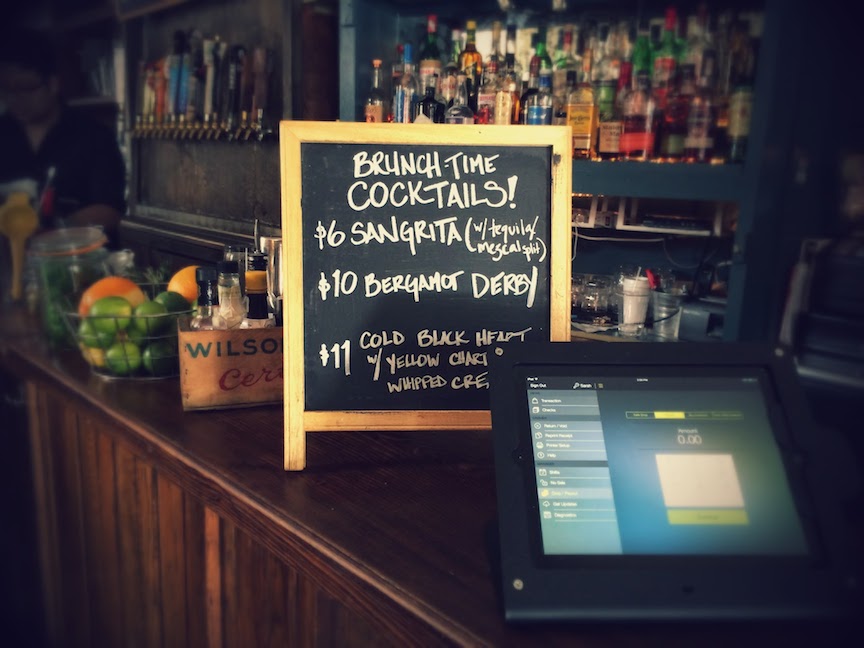 BRUNCH-TIME
COCKTAILS!
$6 SANGRITA (w/ tequila/
mezcal split)
$10 BERGAMOT DERBY
$11 COLD BLACK HEART
w/ YELLOW CHAR
WHIPPED CRE
WILSO
Cer
Sign Out
Sarah
Transaction
Checks
Return / Void
Reprint Receipt
Printer Setup
Help
Shifts
No Sale
Get Updates
Diagnostics
Amount
0.00